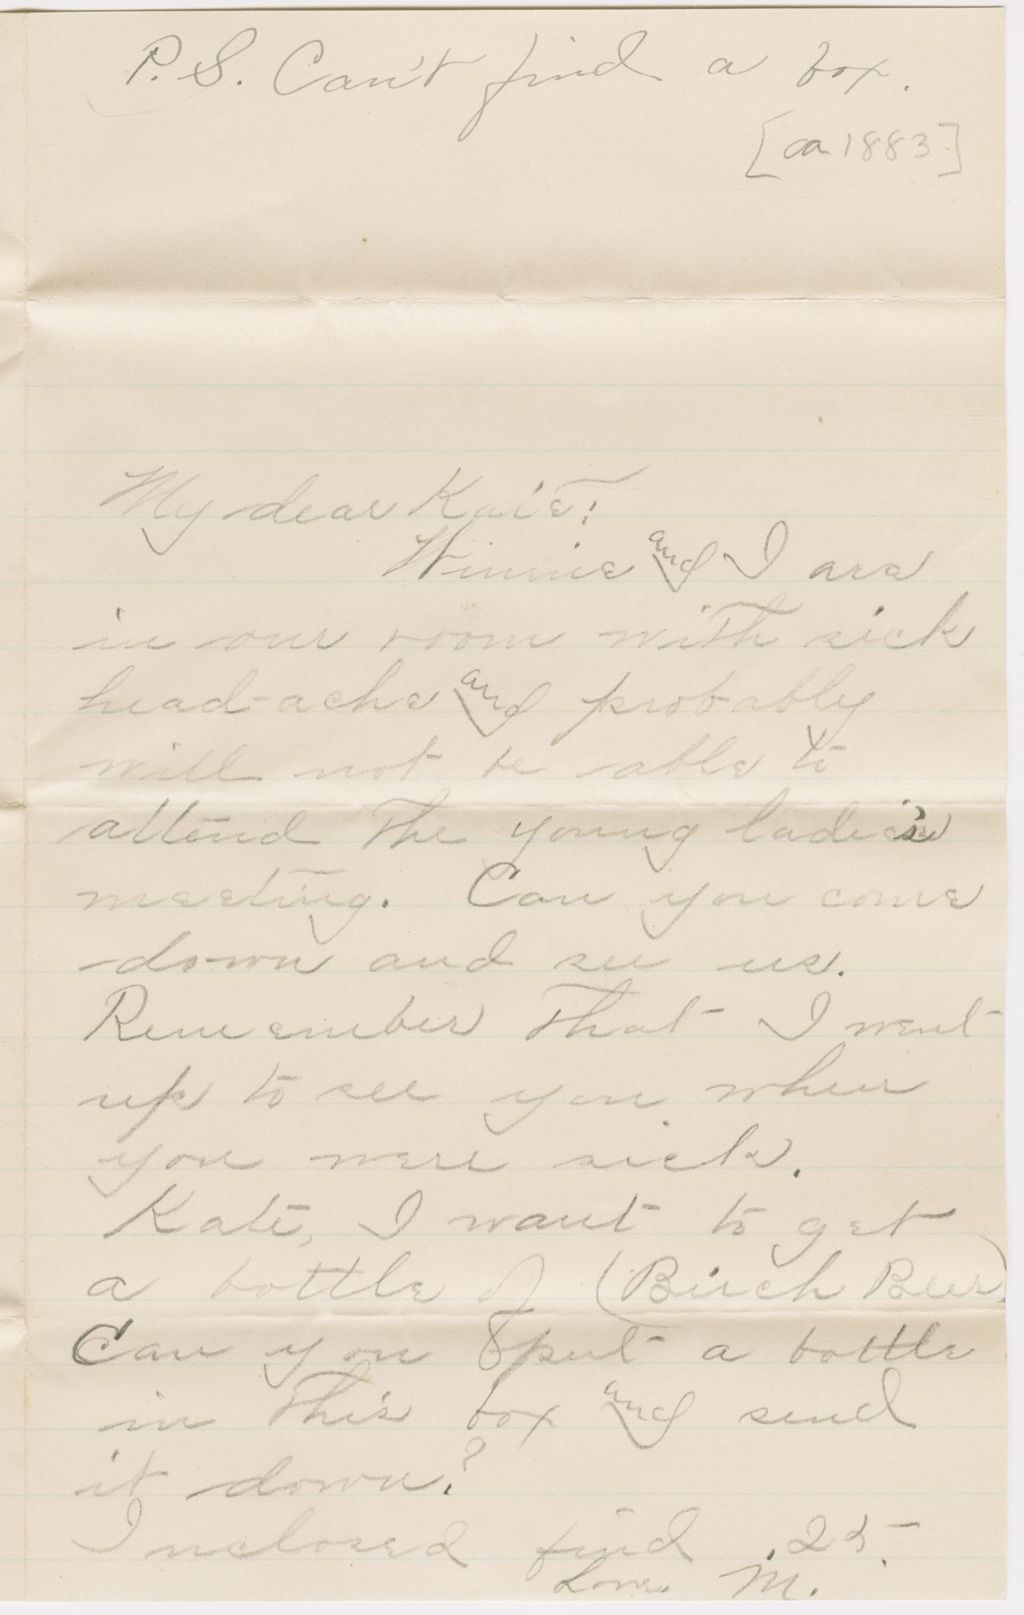 P.S. Can't find a box.
[ca 1883]
My dear Kate:
Winnie and I are
in our room with sick
head-ache and probably
will not be able to
attend the young ladies
meeting. Can you come
down and see us.
Remember that I went
up to see you when
you were sick.
Kate, I want to get
a bottle of (Birch Beer)
Can you put a bottle
in this box and send
it down?
Inclosed find .25.
Love M.